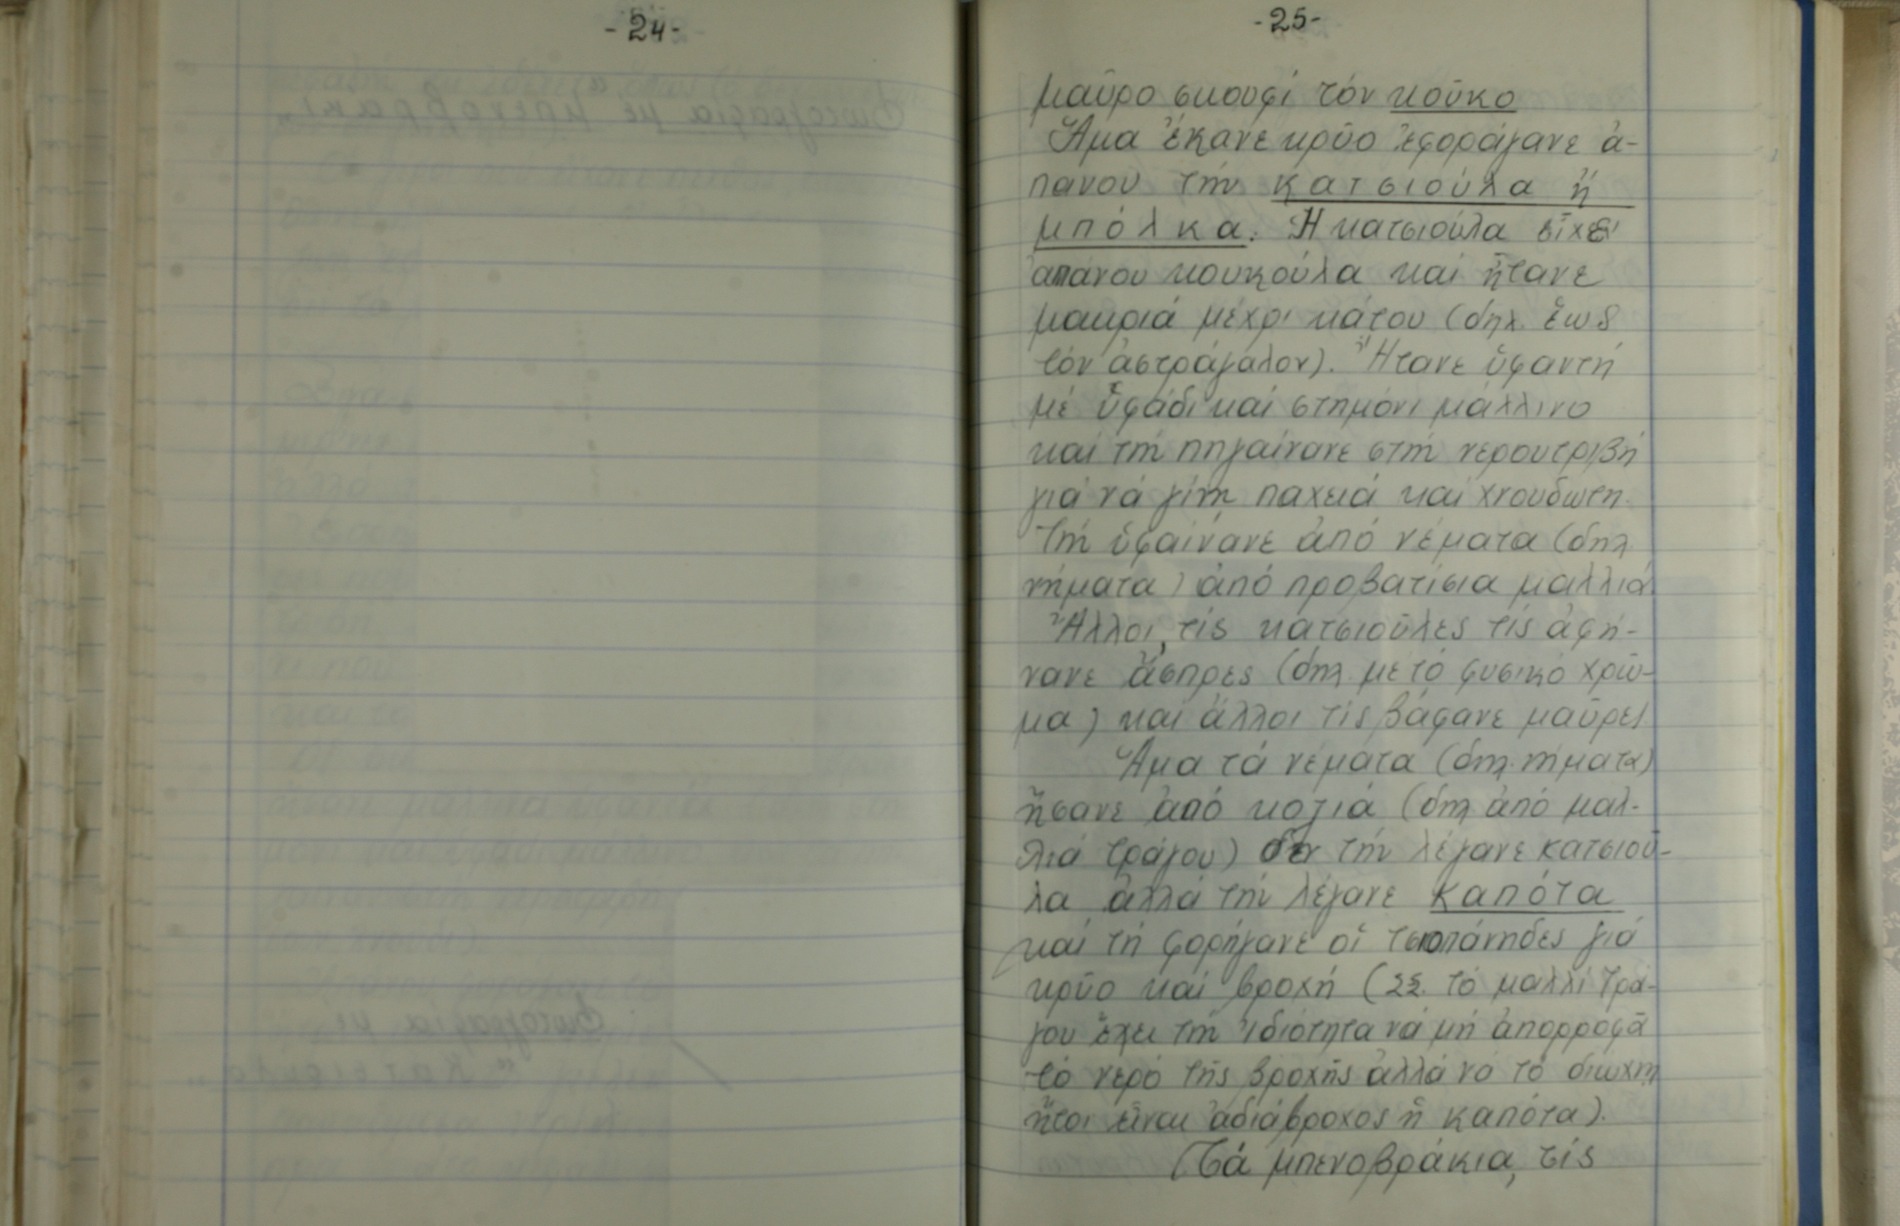 -24-
-25-
μαῦρο σκουφί τόν κοῦκο
Ἅμα ἔκανε κρῦο ἐφοράγανε ἀ-
πανου τήν κατσιούλα ἤ
μπόλκα. Ἡ κατσιούλα εἶχε
ἀπάνου κουκούλα καί ἦτανε
μακριά μέχρι κάτου (δηλ. ἕως
τόν ἀστράγαλον). Ἦτανε ὑφαντή
μέ ὑφάδι καί στημόνι μάλλινο
καί τήν πηγαίνανε στήν νεροτριβή
γιά νά γίνη παχειά καί χνουδωτη.
Τήν ὑφαίνανε ἀπό νέματα (δηλ.
νήματα) ἀπό προβατίσια μαλλιά.
Ἄλλοι, τίς κατσιοῦλες τίς ἀφή-
νανε ἄσπρες (δηλ. με τό φυσικό χρῶ-
μα) και ἄλλοι τίς βάφανε μαῦρες
Ἅμα τά νέματα (δηλ. νήματα)
ἦσανε ἀπό κοζιά (δηλ ἀπό μαλ-
λιά τράγου) δεν τήν λέγανε κατσιού-
λα ἀλλά τήν λέγανε καπότα
καί τή φορήγανε οἱ τσιοπάνηδες γιά
κρῦο καί βροχή (ΣΣ. τό μαλλί τρά-
γου ἔχει τήν ἰδιότητα νά μή ἀπορροφᾶ
τό νερό τῆς βροχῆς ἀλλά νά τό διώχνη
ἤτοι εἶναι ἀδιάβροχος ἡ καπότα).
(Τά μπενοβράκια, τίς